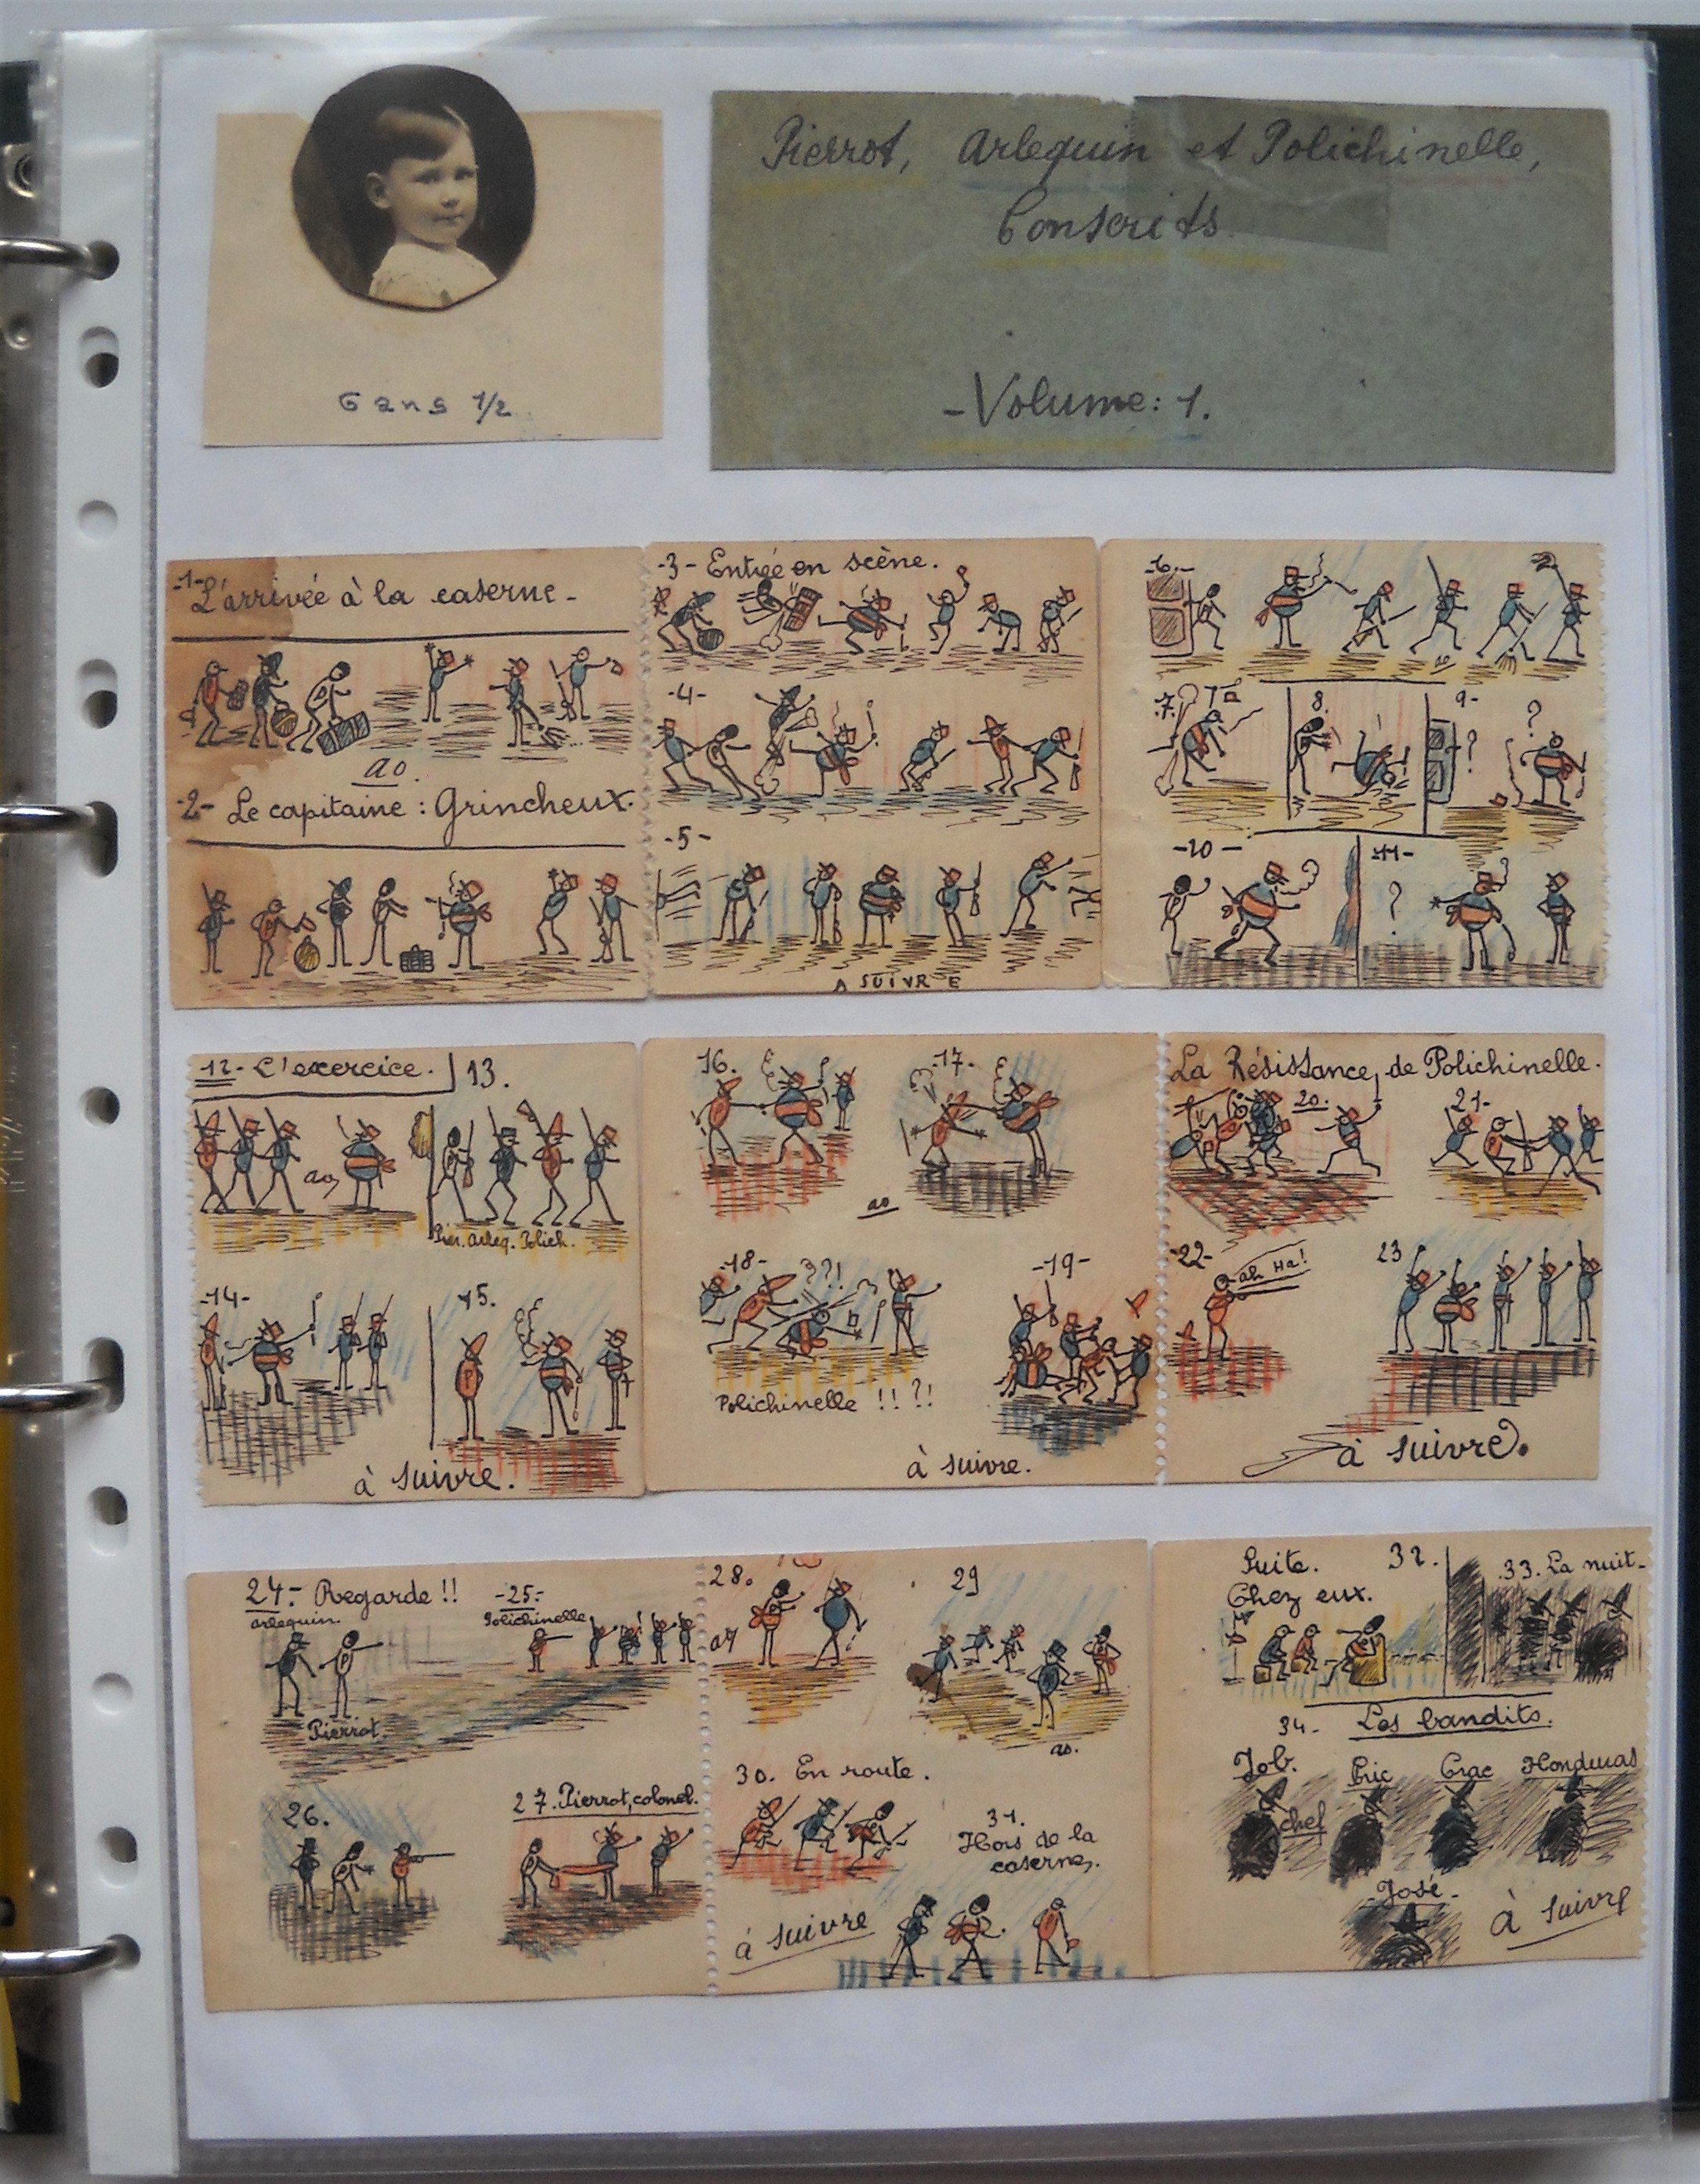 6 ans 1/2
Pierrot, Arlequin et Polichinelle,
Conscrits.
- Volume: 1.
-1- L'arrivée à la caserne -
ao.
-2- Le capitaine : Grincheux.
-3- Entrée en scène.
-4-
-5-
A SUIVRE
-6.-
7.
8.
9-
?
?
-10-
-11-
?
12- L'exercice.
13.
ao,
Pier. Arleq. Polich.
-14-
15.
à suivre.
16.
-17-
ao
-18-
??!
-19-
Polichinelle !! ?!
à suivre.
La Résistance, de Polichinelle.
20.
21-
-22-
ah Ha!
23
à suivre.
24.- Regarde !!
arlequin.
Pierrot.
-25-
Polichinelle
26.
27. Pierrot, colonel.
28.
29
ao.
30. En route.
31.
Hors de la
caserne.
à suivre
Suite.
Chez eux.
32.
33. La nuit-
34- Les bandits.
Job.
chef
Cric
Crac
Honduras
-José-
à suivre